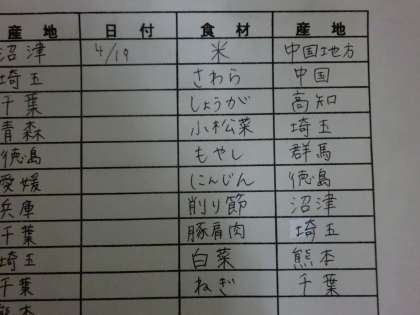 産地 日付 食材 産地
沼津 4/19 米 中国地方
埼玉 さわら 中国
千葉 しょうが 高知
青森 小松菜 埼玉
徳島 もやし 群馬
愛媛 にんじん 徳島
兵庫 削り節 沼津
千葉 豚肩肉 埼玉
埼玉 白菜 熊本
千葉 ねぎ 千葉
熊本